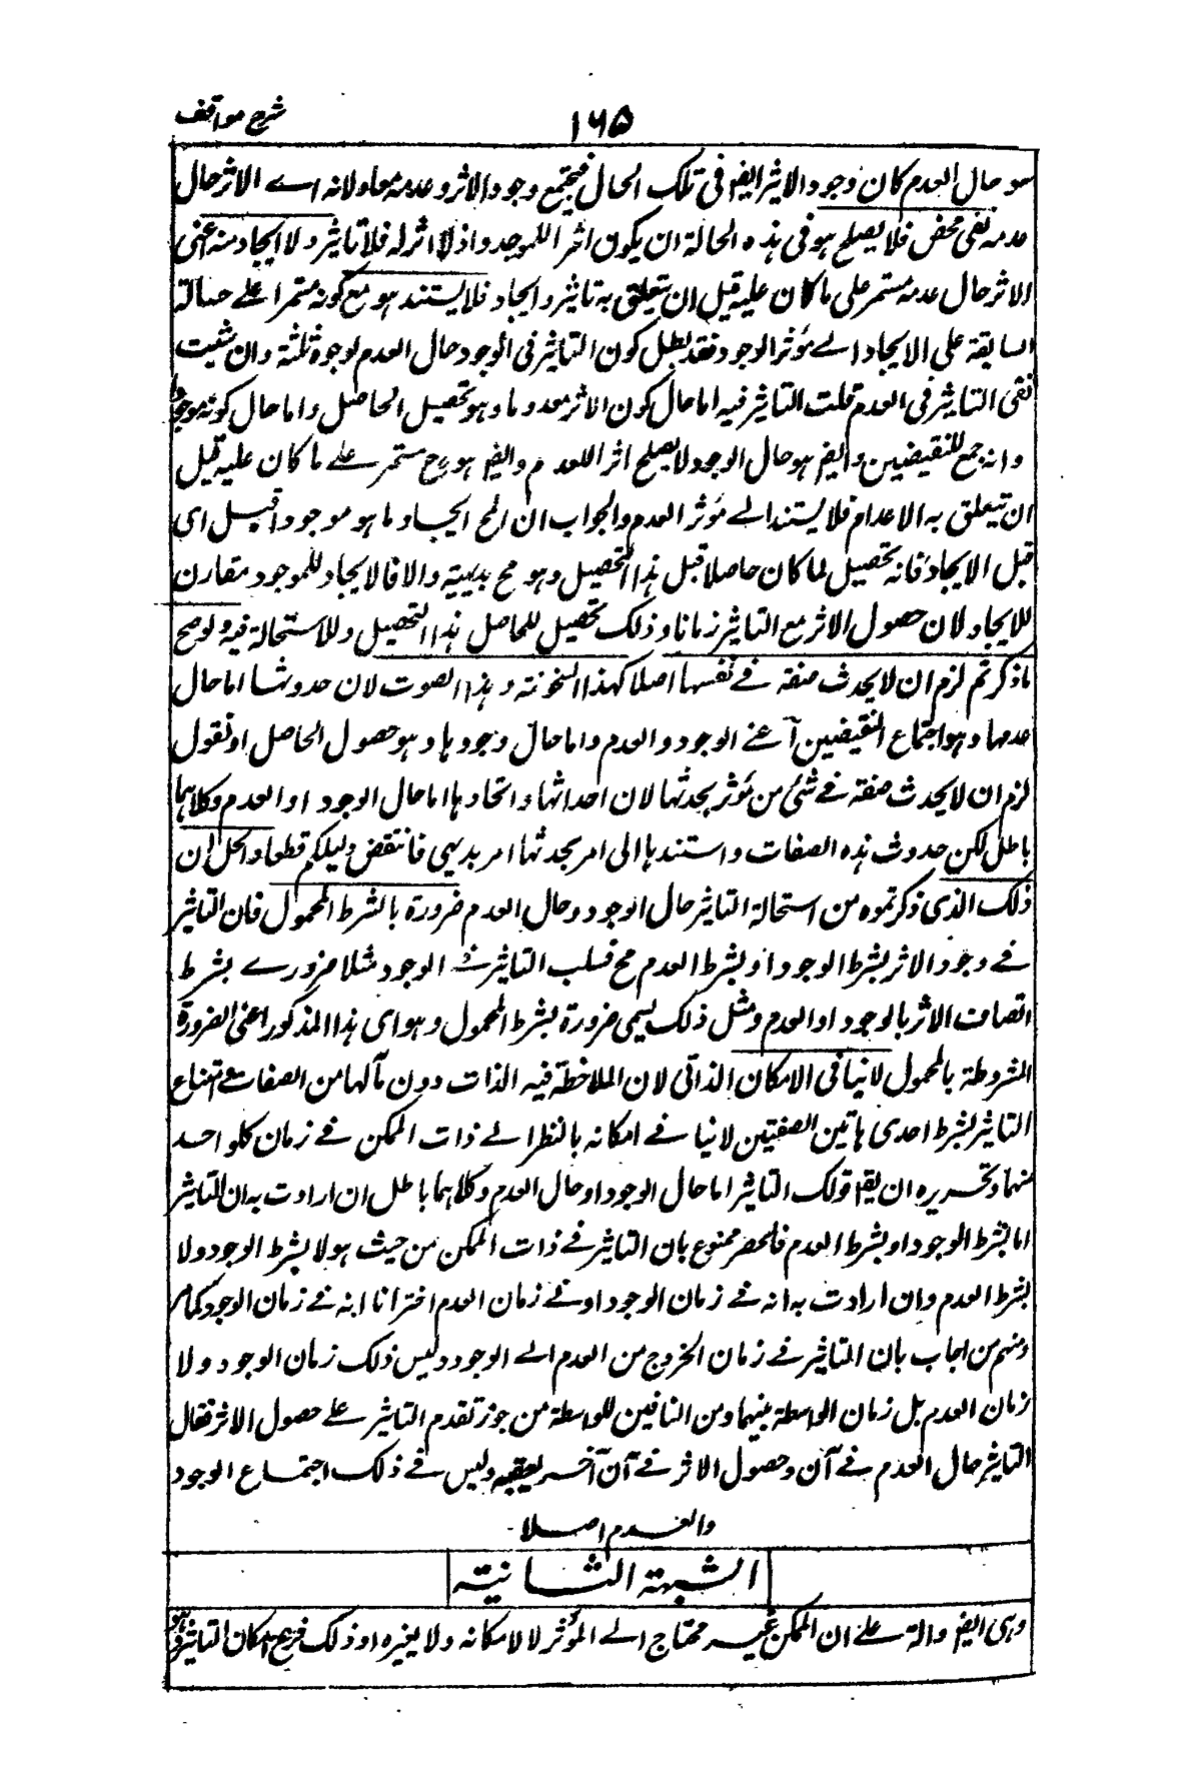 شرح مواقف
١٦٥
هو حال العدم كان وجود الاثر ايضا فى تلك الحال فيجتمع وجود الاثر وعدمه معا ولانه اے الاثر حال
عدمه نفى محض فلا يصلح هو فى هذه الحالة ان يكون اثرا للموجد واذ لا اثر له فلا تاثير ولا ايجاد منه اعنى
الاثر حال عدمه مستمر على ما كان عليه قبل ان يتعلق به تاثير وايجاد فلا يستند هو مع كونه مستمرا علے حالة
السابقة على الايجاد الے مؤثر الوجود فقد بطل كون التاثير فى الوجود حال العدم لوجوه ثلثة وان شئت
نفى التاثير فى العدم قلت التاثير فيه اما حال كون الاثر معدوما وهو تحصيل الحاصل واما حال كونه موجودا
وانه جمع للنقيضين وايضا هو حال الوجود لا يصلح اثرا للعدم وايضا هو ح مستمر علے ما كان عليه قبل
ان يتعلق به الاعدام فلا يستند الے مؤثر العدم والجواب ان المح ايجاد ما هو موجود قبل اى
قبل الايجاد فانه تحصيل لما كان حاصلا قبل هذا التحصيل وهو مح بديهية والا فالايجاد للموجود مقارن
للايجاد لان حصول الاثر مع التاثير زمانا وذلك تحصيل للحاصل بهذا التحصيل ولا استحالة فيه ولو صح
ما ذكرتم لزم ان لا يحدث صفة فے نفسها اصلا كهذا السخونة وهذا الصوت لان حدوثها اما حال
عدمها وهو اجتماع النقيضين اعنے الوجود والعدم واما حال وجودها وهو حصول الحاصل او نقول
لزم ان لا يحدث صفة فے شئ من مؤثر يحدثها لان احداثها وايجادها اما حال الوجود او العدم وكلاهما
باطل لكن حدوث هذه الصفات واستنادها الى امر يحدثها امر بديهى فانتقض دليلكم قطعا والحل ان
ذلك الذى ذكرتموه من استحالة التاثير حال الوجود وحال العدم ضرورة بالشرط المحمول فان التاثير
فے وجود الاثر بشرط الوجود او بشرط العدم مح فسلب التاثير فے الوجود مثلا ضرورے بشرط
اتصاف الاثر بالوجود او العدم ومثل ذلك يسمى ضرورة بشرط المحمول وهو اى هذا المذكور اعنى الضرورة
المشروطة بالمحمول لا ينافى الامكان الذاتى لان الملاحظة فيه الذات دون مآلها من الصفات فامتناع
التاثير بشرط احدى هاتين الصفتين لا ينافے امكانه بالنظر الے ذات الممكن فے زمان كل واحد
منهما وتحريره ان يقا قولك التاثير اما حال الوجود او حال العدم وكلاهما باطل ان ارادت به ان التاثير
اما بشرط الوجود او بشرط العدم فالحصر ممنوع بان التاثير فے ذات الممكن من حيث هو لا بشرط الوجود ولا
بشرط العدم وان ارادت به انه فے زمان الوجود او فے زمان العدم اخترنا انه فے زمان الوجود كما مر
ومنهم من اجاب بان التاثير فے زمان الخروج من العدم الے الوجود وليس ذلك زمان الوجود ولا
زمان العدم بل زمان الواسطة بينهما ومن النافين للواسطة من جوز تقدم التاثير علے حصول الاثر فقال
التاثير حال العدم فے آن وحصول الاثر فے آن آخر يعقبه وليس فے ذلك اجتماع الوجود
والعدم اصلا
الشبهة الثانية
وهى ايضا دالة علے ان الممكن غير محتاج الے المؤثر لا لامكانه ولا لغيره اذ ذلك فرع امكان التاثير